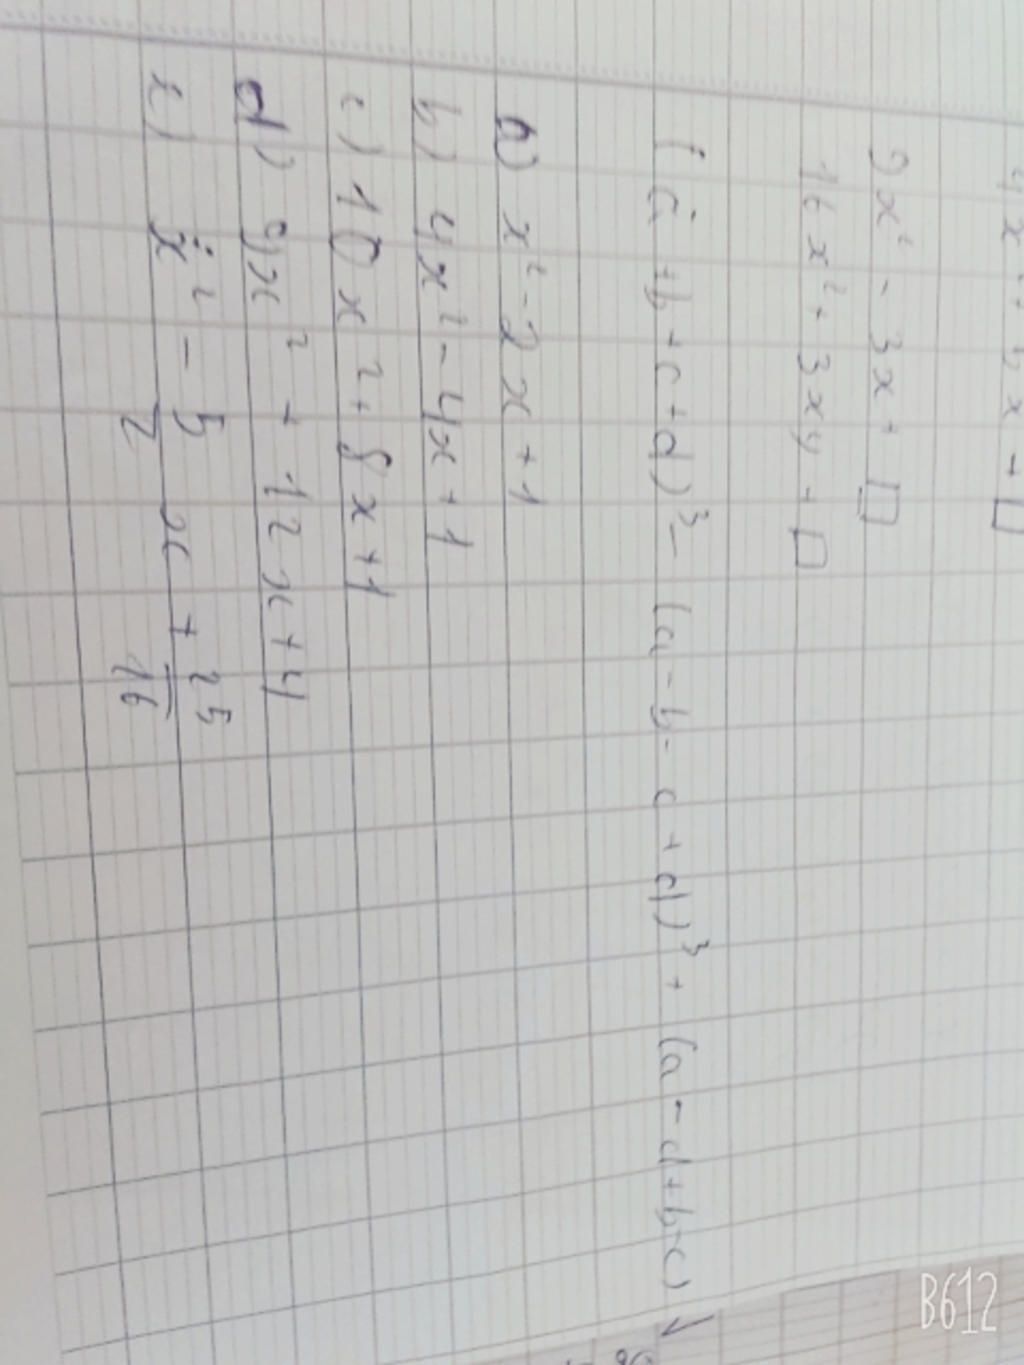 4x² + 5x + □
9x² - 3x + □
16x² + 3xy + □
(a + b + c + d)³ - (a - b - c + d)³ + (a - d + b - c)
a) x² - 2x + 1
b) 4x² - 4x + 1
c) 10x² + 8x + 1
d) 9x² + 12x + 4
e) x² - 5/2 x + 25/16
B612